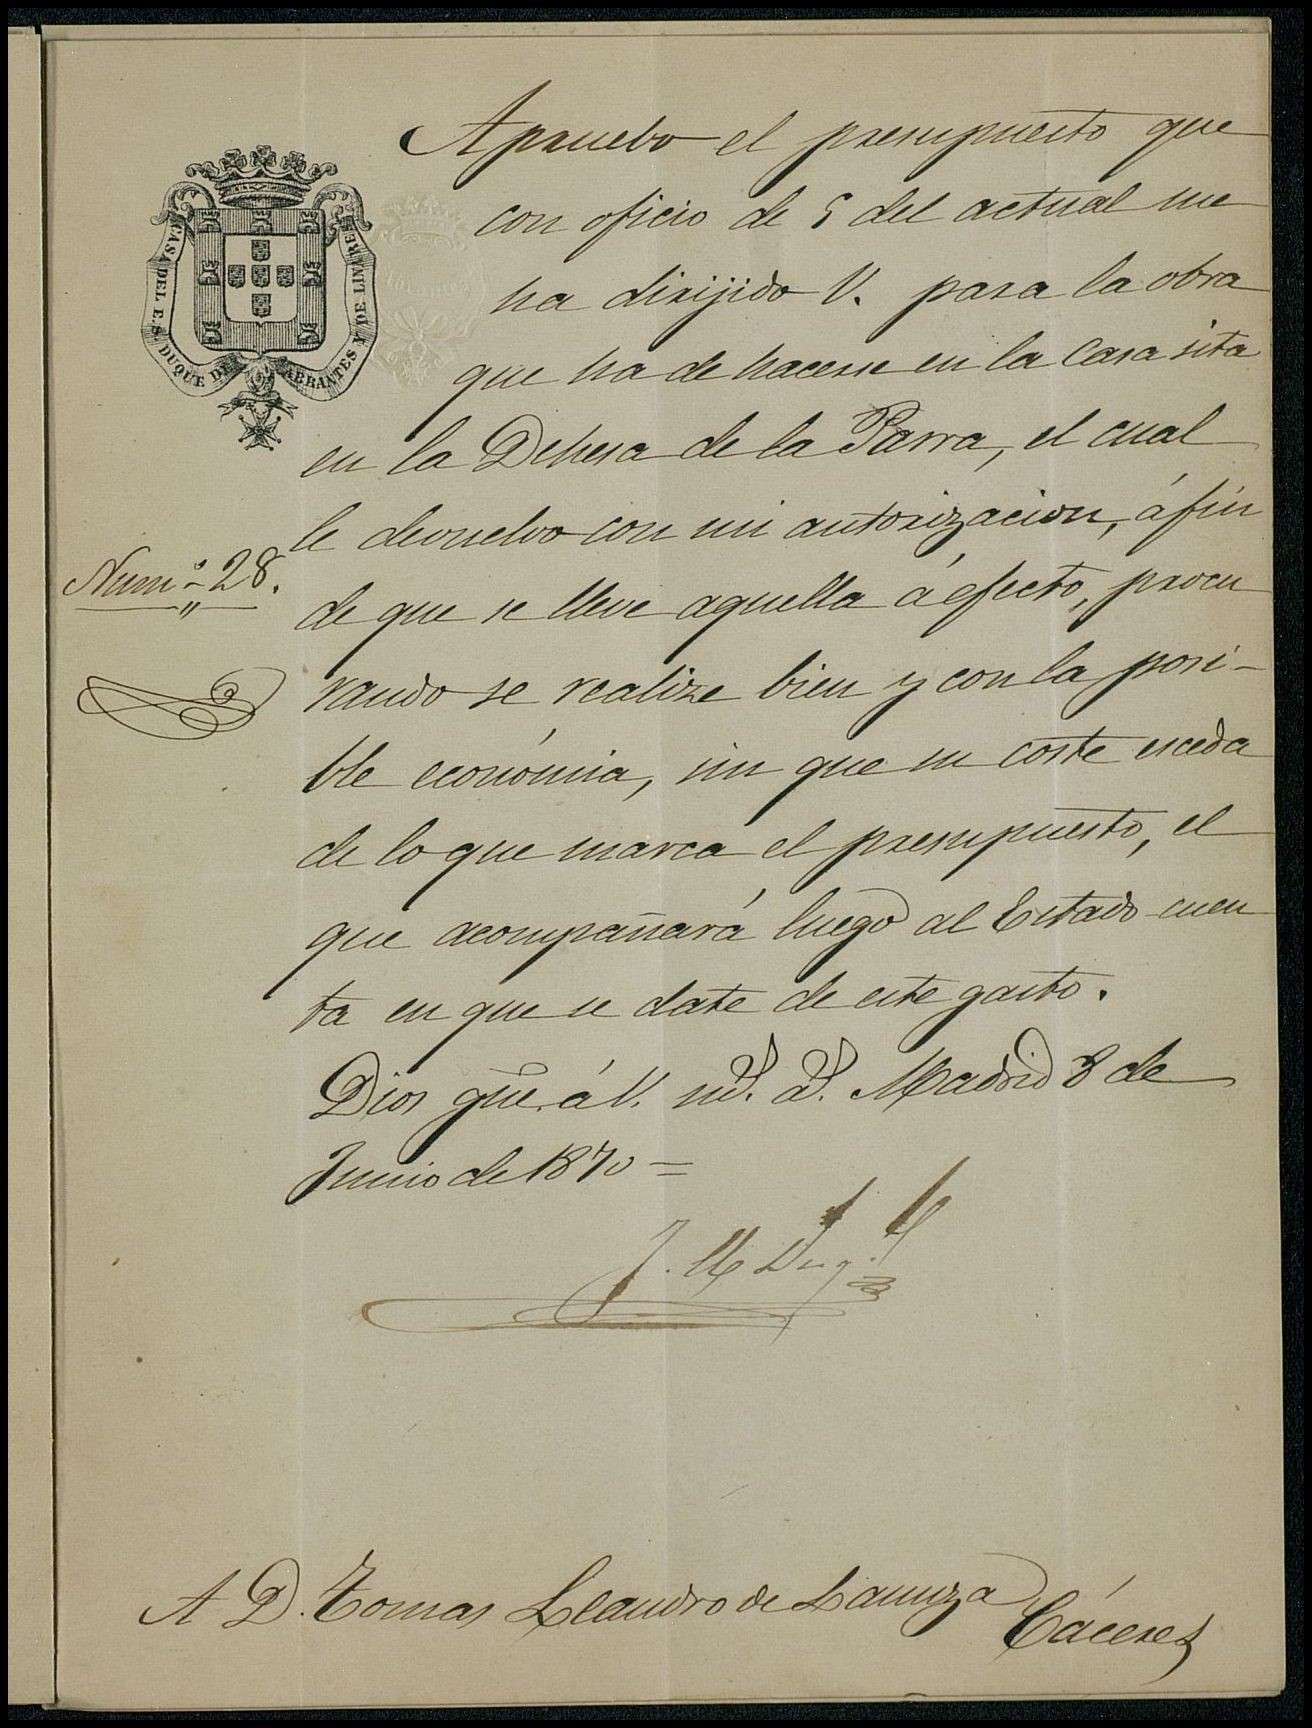 CASA DEL E. S. DUQUE DE ABRANTES Y DE LINARES
Apruebo el presupuesto que
con oficio de 5 del actual me
ha dirijido V. para la obra
que ha de hacerse en la Casa sita
en la Dehesa de la Parra, el cual
le devuelvo con mi autorizacion, á fin
Num.º 28.
de que se lleve aquella á efecto, procu
rando se realize bien y con la posi-
ble económia, sin que su coste esceda
de lo que marca el presupuesto, el
que acompañará luego al Estado cuen
ta en que se date de este gasto.
Dios gue. á V. ms. as. Madrid 8 de
Junio de 1870=
A D. Tomas Leandro de
Cáceres